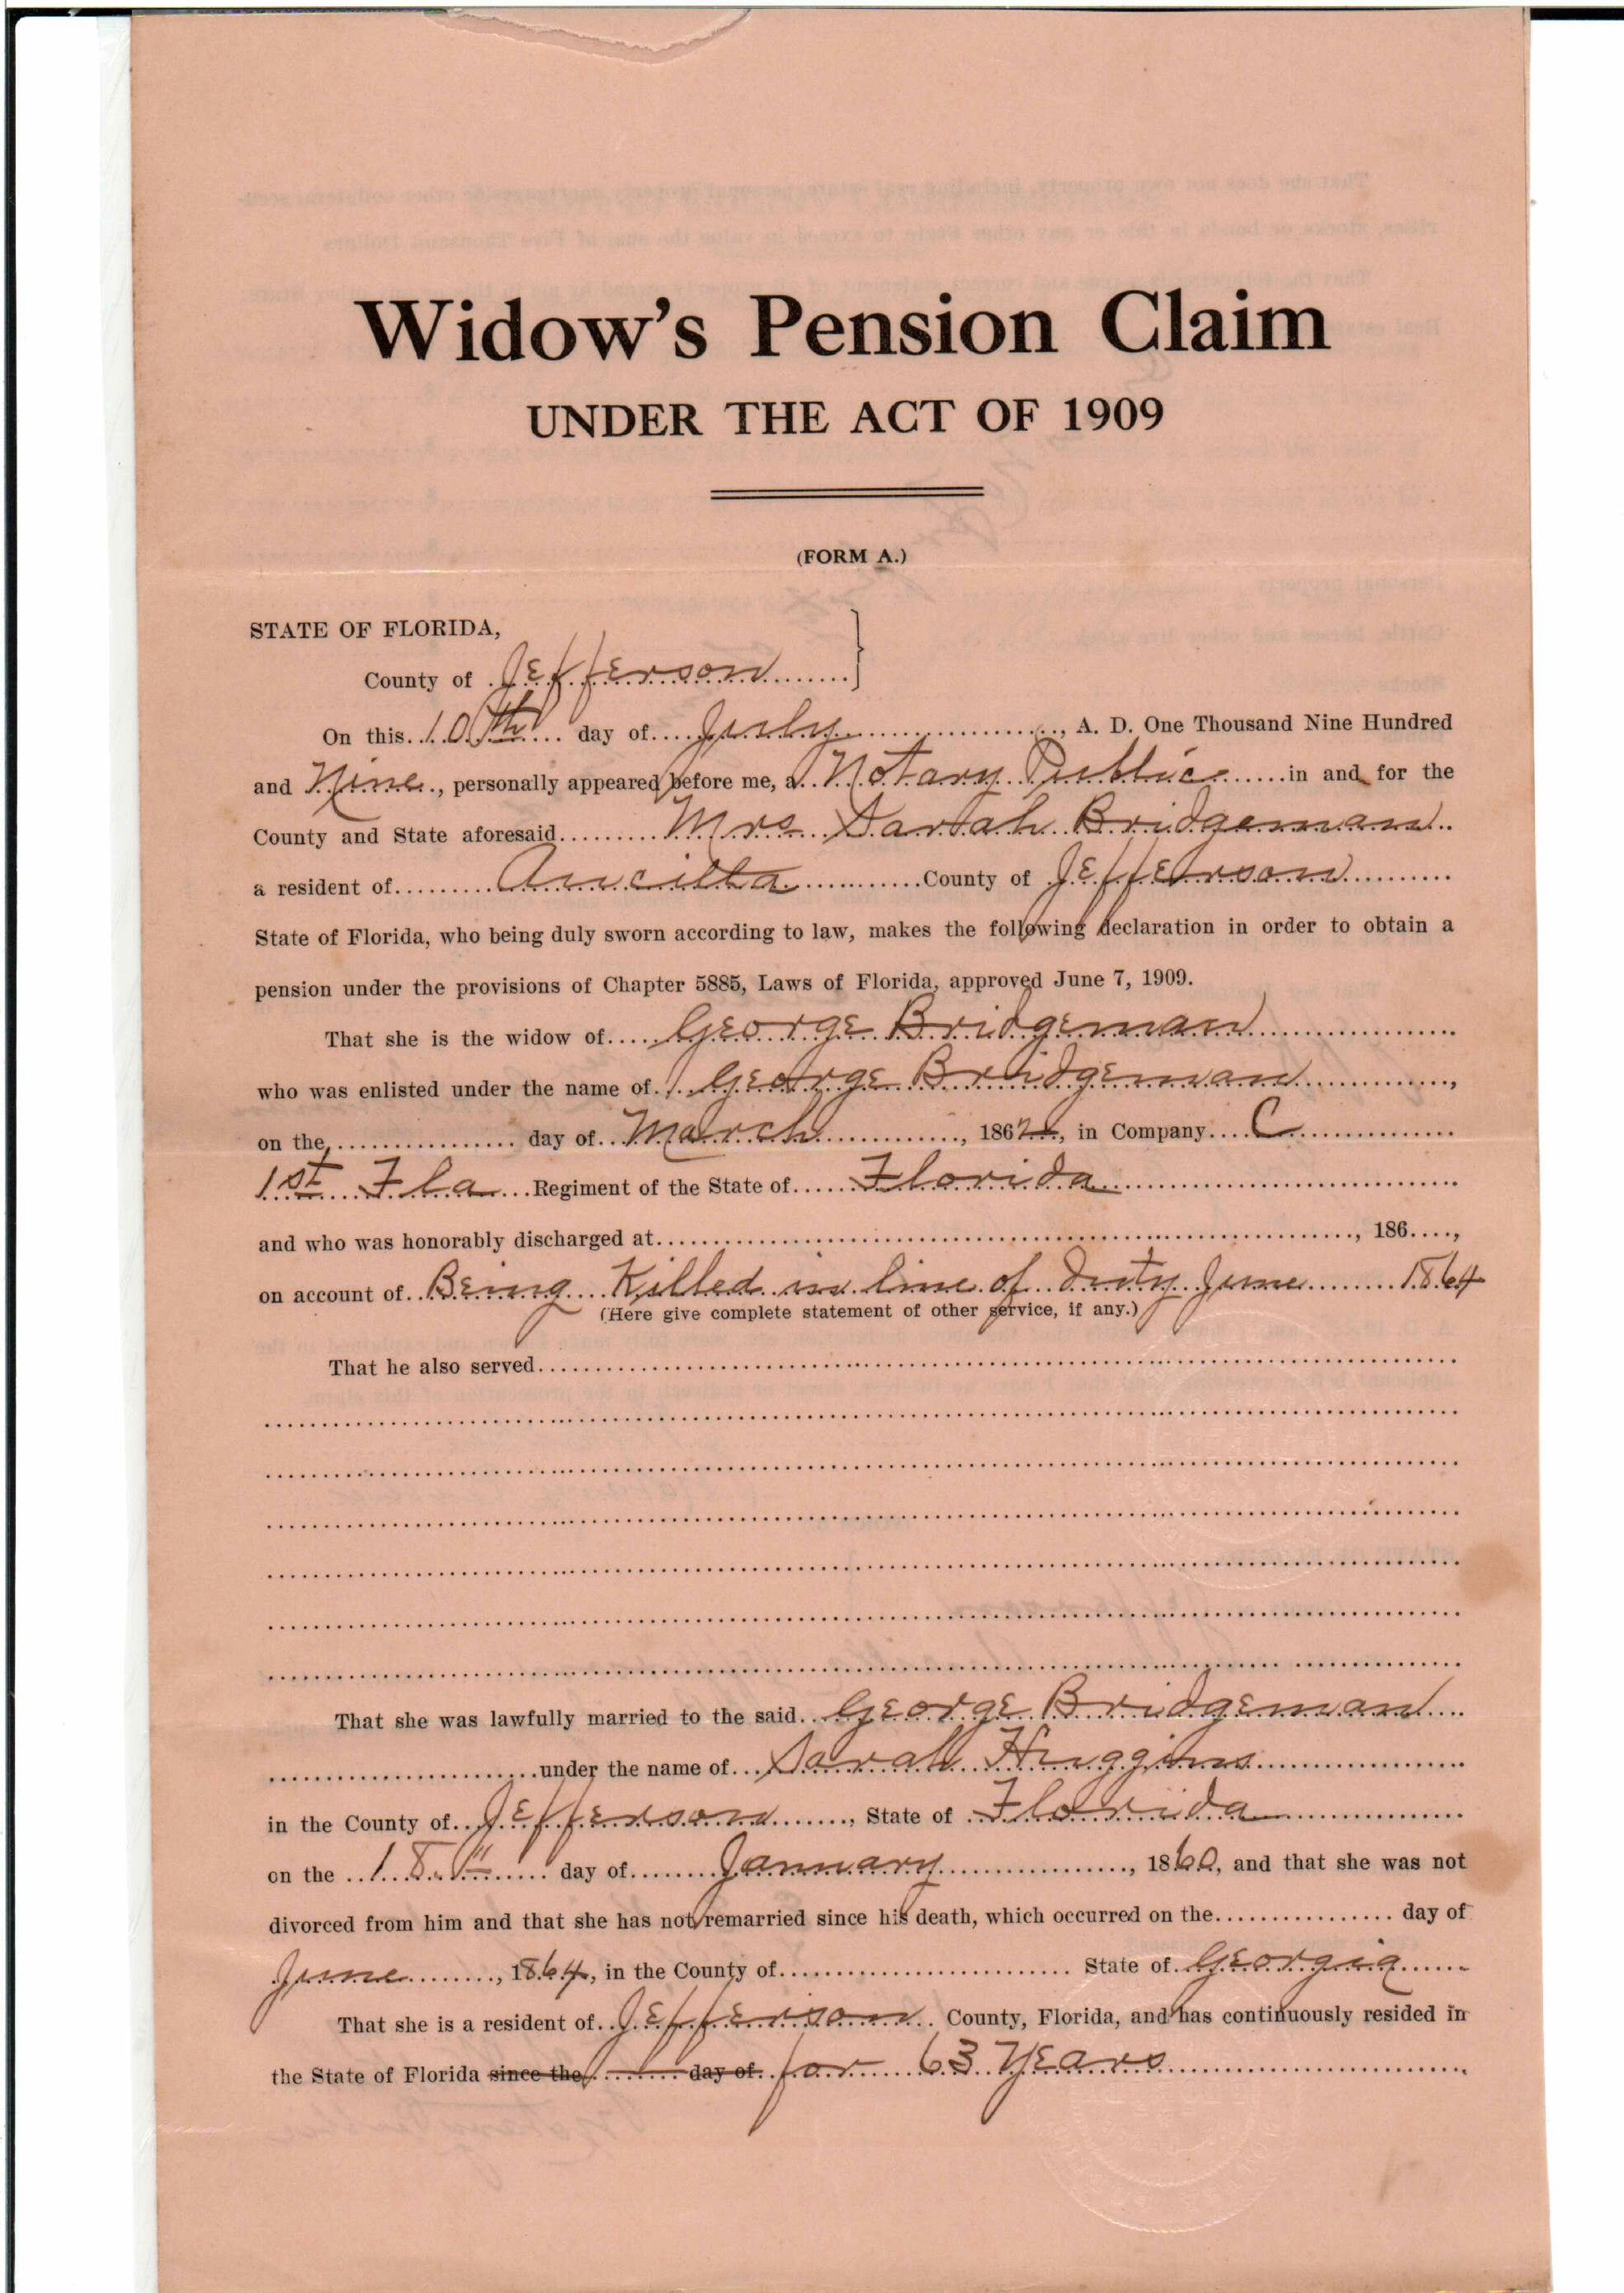 Widow's Pension Claim
UNDER THE ACT OF 1909
(FORM A.)
STATE OF FLORIDA,
County of Jefferson
On this 10th day of July, A. D. One Thousand Nine Hundred
and Nine, personally appeared before me, a Notary Public in and for the
County and State aforesaid Mrs Sarah Bridgeman
a resident of Aucilla County of Jefferson
State of Florida, who being duly sworn according to law, makes the following declaration in order to obtain a
pension under the provisions of Chapter 5885, Laws of Florida, approved June 7, 1909.
That she is the widow of George Bridgeman
who was enlisted under the name of George Bridgeman,
on the day of March, 1862, in Company C
1st Fla Regiment of the State of Florida
and who was honorably discharged at, 186,
on account of Being Killed in line of Duty June 1864
(Here give complete statement of other service, if any.)
That he also served
That she was lawfully married to the said George Bridgeman
under the name of Sarah Huggins
in the County of Jefferson, State of Florida
on the 18th day of January, 1860, and that she was not
divorced from him and that she has not remarried since his death, which occurred on the day of
June, 1864, in the County of State of Georgia
That she is a resident of Jefferson County, Florida, and has continuously resided in
the State of Florida since the day of for 63 Years